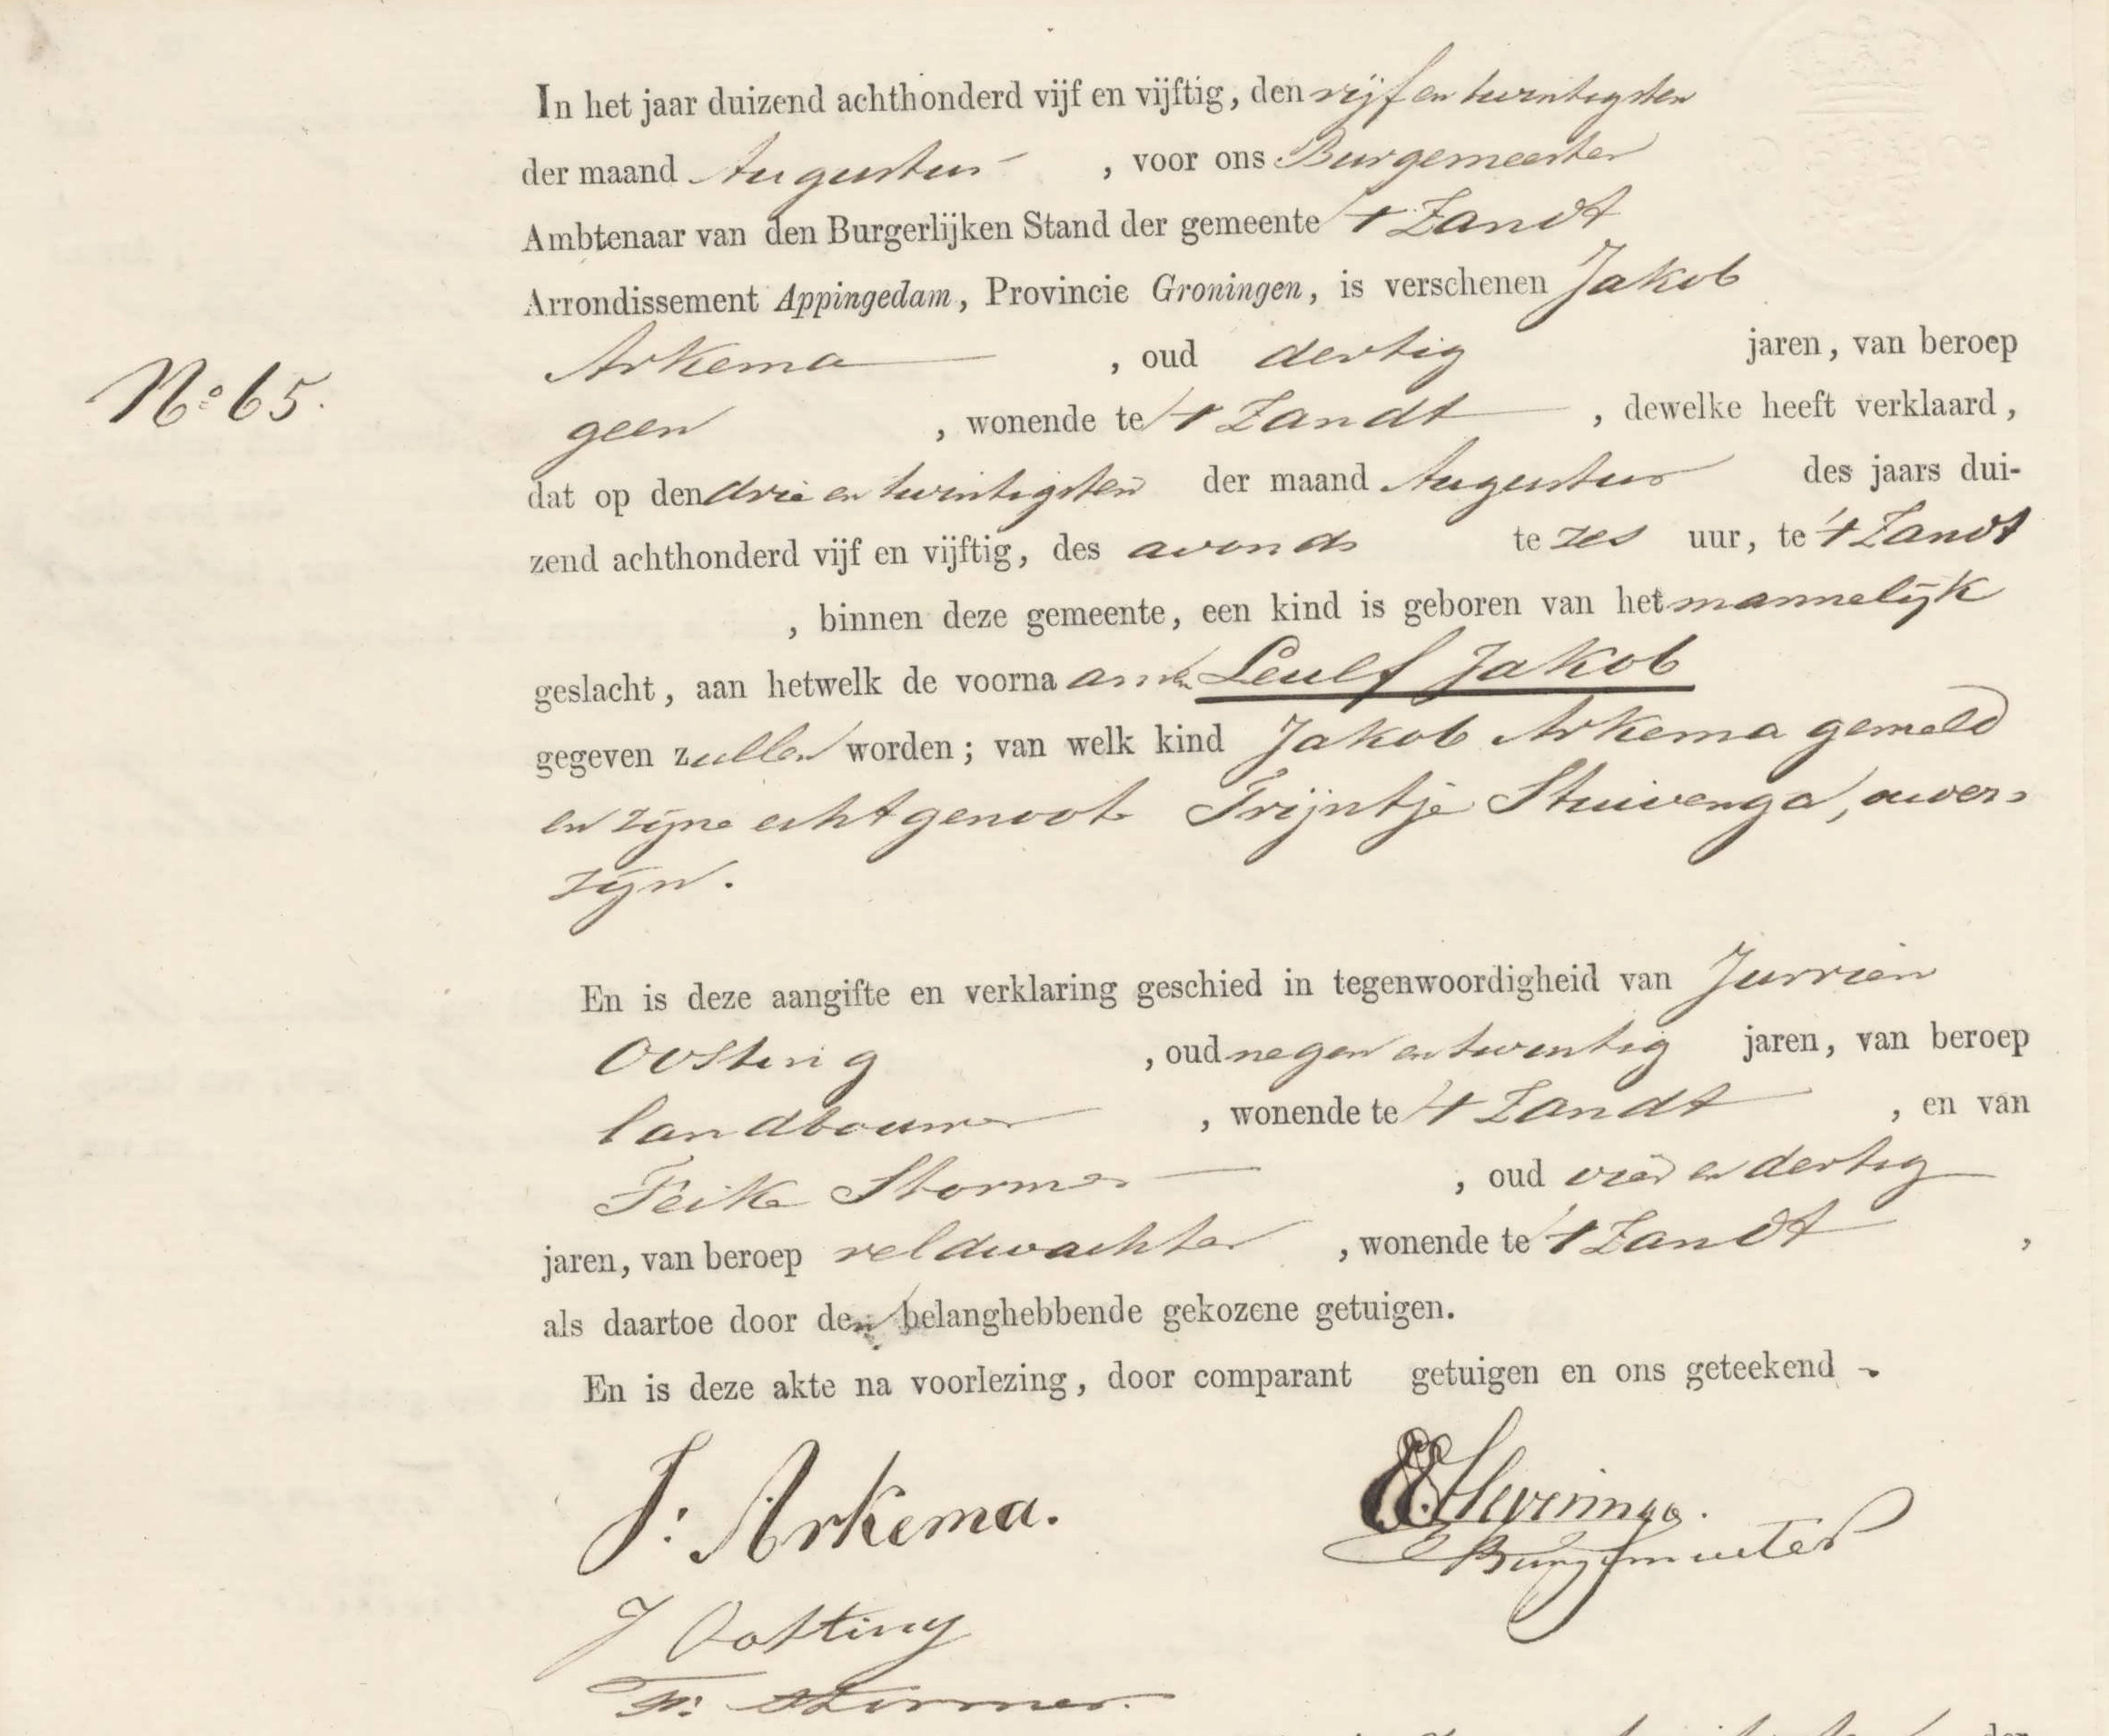 In het jaar duizend achthonderd vijf en vijftig, den vijf en twintigsten
der maand Augustus, voor ons Burgemeester
Ambtenaar van den Burgerlijken Stand der gemeente 't Zandt
Arrondissement Appingedam, Provincie Groningen, is verschenen Jakob
Arkema, oud dertig jaren, van beroep
No 65.
geen, wonende te 't Zandt, dewelke heeft verklaard,
dat op den drie en twintigsten der maand Augustus des jaars dui-
zend achthonderd vijf en vijftig, des avonds te zes uur, te 't Zandt
, binnen deze gemeente, een kind is geboren van het mannelijk
geslacht, aan hetwelk de voornamen Leulf Jakob
gegeven zullen worden; van welk kind Jakob Arkema gemeld
en zijne echtgenoote Trijntje Stuivenga, ouders
zijn.
En is deze aangifte en verklaring geschied in tegenwoordigheid van Jurrien
Oosting, oud negen en twintig jaren, van beroep
landbouwer, wonende te 't Zandt, en van
Feike Stormer, oud vier en dertig
jaren, van beroep veldwachter, wonende te 't Zandt,
als daartoe door den belanghebbende gekozene getuigen.
En is deze akte na voorlezing, door comparant getuigen en ons geteekend
J: Arkema.
Burgemeester
J Oosting
F: Stormer.